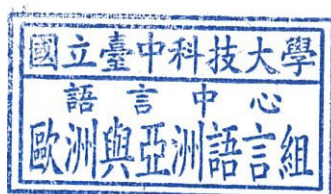 國立臺中科技大學
語言中心
歐洲與亞洲語言組